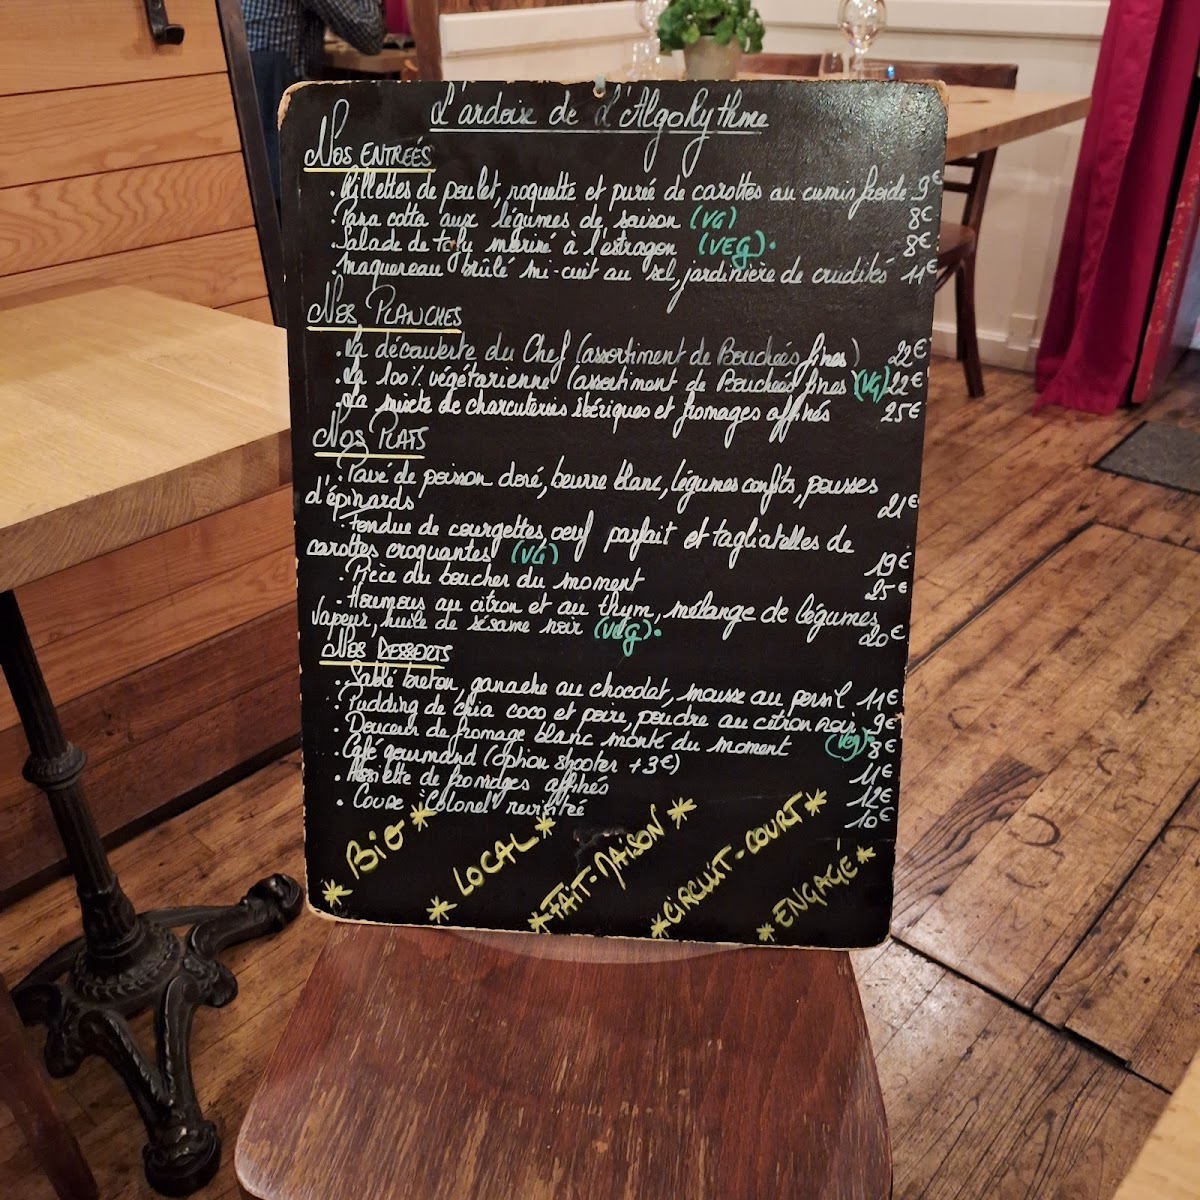 L'ardoise de L'AlgoRythme
NOS ENTREÉS
. Rillettes de poulet, roquette et purée de carottes au cumin froide 9€
. Pana cotta aux légumes de saison (VG) 8€
. Salade de tofu mariné à l'estragon (VEG). 8€
. maquereau brûlé mi-cuit au sel, jardinière de crudités 11€
NOS PLANCHES
. La découverte du Chef (assortiment de Bouchées fines) 22€
. La 100% végétarienne (assortiment de Bouchées fines (VG) 22€
. La mixte de charcuteries ibériques et fromages affinés 25€
NOS PLATS
. Pavé de poisson doré, beurre blanc, légumes confits, pousses
d'épinards 21€
. Fondue de courgettes, oeuf parfait et tagliatelles de
carottes croquantes (VG) 19€
. Pièce du boucher du moment 25€
. Houmous au citron et au thym, mélange de légumes
vapeur, huile de sésame noir (VEG). 20€
NOS DESSERTS
. Sablé breton, ganache au chocolat, mousse au persil 11€
. Pudding de chia coco et poire, poudre au citron noir 9€
. Douceur de fromage blanc monté du moment (VEG). 8€
. Café gourmand (option shooter +3€) 11€
. Assiette de fromages affinés 12€
. Coupe "Colonel" revisitée 10€
* BIO *
* LOCAL *
* FAIT-MAISON *
* CIRCUIT-COURT *
* ENGAGÉ *